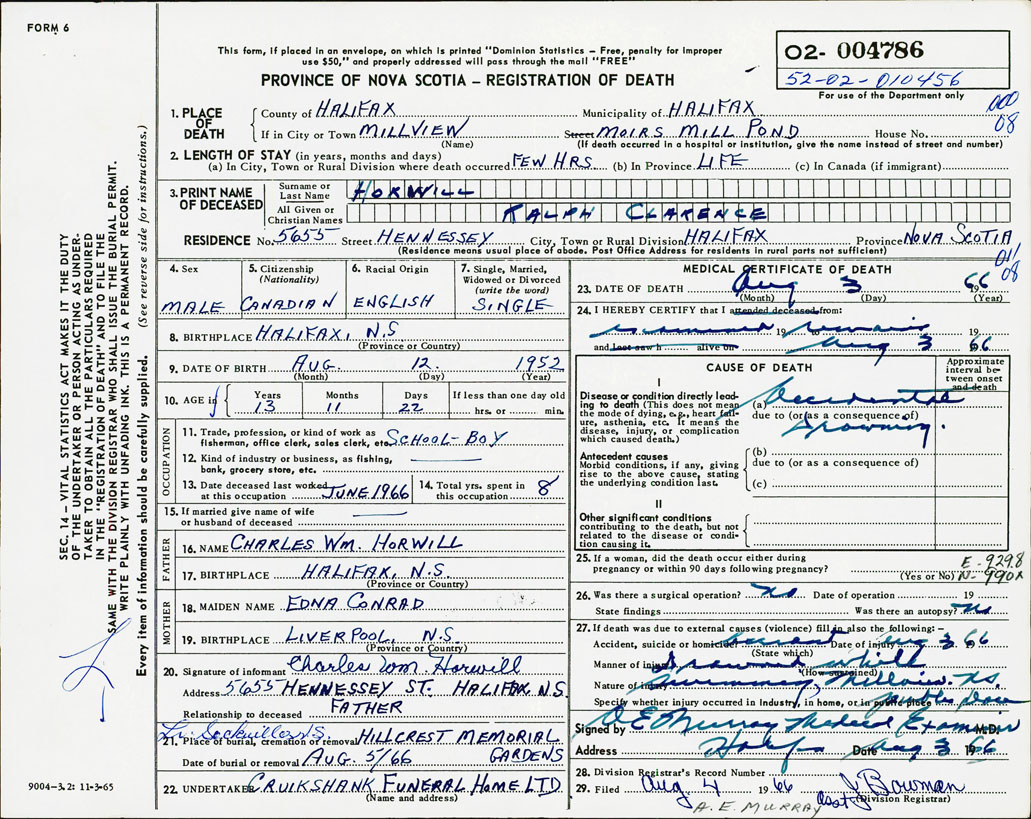 FORM 6
This form, if placed in an envelope, on which is printed "Dominion Statistics – Free, penalty for improper
use $50," and properly addressed will pass through the mail "FREE"
PROVINCE OF NOVA SCOTIA – REGISTRATION OF DEATH
02- 004786
52-02-010456
For use of the Department only
000
08
SEC. 14 – VITAL STATISTICS ACT MAKES IT THE DUTY
OF THE UNDERTAKER OR PERSON ACTING AS UNDER-
TAKER TO OBTAIN ALL THE PARTICULARS REQUIRED
IN THE "REGISTRATION OF DEATH" AND TO FILE THE
SAME WITH THE DIVISION REGISTRAR WHO SHALL ISSUE THE BURIAL PERMIT.
WRITE PLAINLY WITH UNFADING INK. THIS IS A PERMANENT RECORD.
Every item of information should be carefully supplied. (See reverse side for instructions.)
9004-3.2: 11-3-65
1. PLACE OF DEATH
County of HALIFAX Municipality of HALIFAX
If in City or Town MILLVIEW Street MOIRS MILL POND House No.
(Name) (If death occurred in a hospital or institution, give the name instead of street and number)
2. LENGTH OF STAY (in years, months and days)
(a) In City, Town or Rural Division where death occurred FEW HRS. (b) In Province LIFE (c) In Canada (if immigrant)
3. PRINT NAME OF DECEASED
Surname or Last Name HORWILL
All Given or Christian Names RALPH CLARENCE
RESIDENCE No. 5655 Street HENNESSEY City, Town or Rural Division HALIFAX Province NOVA SCOTIA
(Residence means usual place of abode. Post Office Address for residents in rural parts not sufficient)
011
08
4. Sex MALE
5. Citizenship (Nationality) CANADIAN
6. Racial Origin ENGLISH
7. Single, Married, Widowed or Divorced (write the word) SINGLE
8. BIRTHPLACE HALIFAX, N.S
(Province or Country)
9. DATE OF BIRTH AUG. 12. 1952
(Month) (Day) (Year)
10. AGE in Years 13 Months 11 Days 22 If less than one day old hrs. or min.
OCCUPATION
11. Trade, profession, or kind of work as fisherman, office clerk, sales clerk, etc. SCHOOL-BOY
12. Kind of industry or business, as fishing, bank, grocery store, etc.
13. Date deceased last worked at this occupation JUNE 1966 14. Total yrs. spent in this occupation 8
15. If married give name of wife or husband of deceased
FATHER
16. NAME CHARLES WM. HORWILL
17. BIRTHPLACE HALIFAX, N.S.
(Province or Country)
MOTHER
18. MAIDEN NAME EDNA CONRAD
19. BIRTHPLACE LIVERPOOL, N.S.
(Province or Country)
20. Signature of informant Charles Wm. Horwill
Address 5655 HENNESSEY ST. HALIFAX N.S.
Relationship to deceased FATHER
21. Place of burial, cremation or removal HILLCREST MEMORIAL GARDENS
Date of burial or removal AUG. 5/66
22. UNDERTAKER CRUIKSHANK FUNERAL HOME LTD.
(Name and address)
MEDICAL CERTIFICATE OF DEATH
23. DATE OF DEATH Aug 3 1966
(Month) (Day) (Year)
24. I HEREBY CERTIFY that I attended deceased from:
examined 19 remains 19
and last saw h alive on Aug 3 1966
CAUSE OF DEATH
Approximate interval between onset and death
I
Disease or condition directly leading to death (This does not mean the mode of dying, e.g., heart failure, asthenia, etc. It means the disease, injury, or complication which caused death.)
(a) Accidental
due to (or as a consequence of)
Drowning.
Antecedent causes
Morbid conditions, if any, giving rise to the above cause, stating the underlying condition last.
(b)
due to (or as a consequence of)
(c)
II
Other significant conditions
contributing to the death, but not related to the disease or condition causing it.
25. If a woman, did the death occur either during pregnancy or within 90 days following pregnancy?
(Yes or No)
E-929.8
N-990X
26. Was there a surgical operation? No Date of operation 19
State findings Was there an autopsy? No
27. If death was due to external causes (violence) fill in also the following:–
Accident, suicide or homicide Date of injury Aug 3 66
(State which)
Manner of injury Drowned while
(How sustained)
Nature of injury swimming, Millview N.S.
Specify whether injury occurred in Industry, in home, or in public place public place
Signed by A E Murray Medical Examiner M.D.
Address Halifax Date Aug 3 1966
28. Division Registrar's Record Number
29. Filed Aug 4 1966 J Bowman
(Division Registrar)
A. E. MURRAY